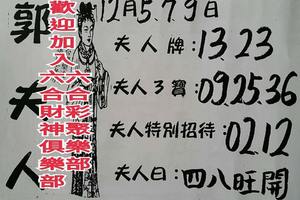 郭夫人
歡迎加入六合財神俱樂部
六合彩眾樂部
12月5.7.9日
夫人牌:13.23
夫人3寶:09.25.36
夫人特別招待:0212
夫人曰:四八旺開